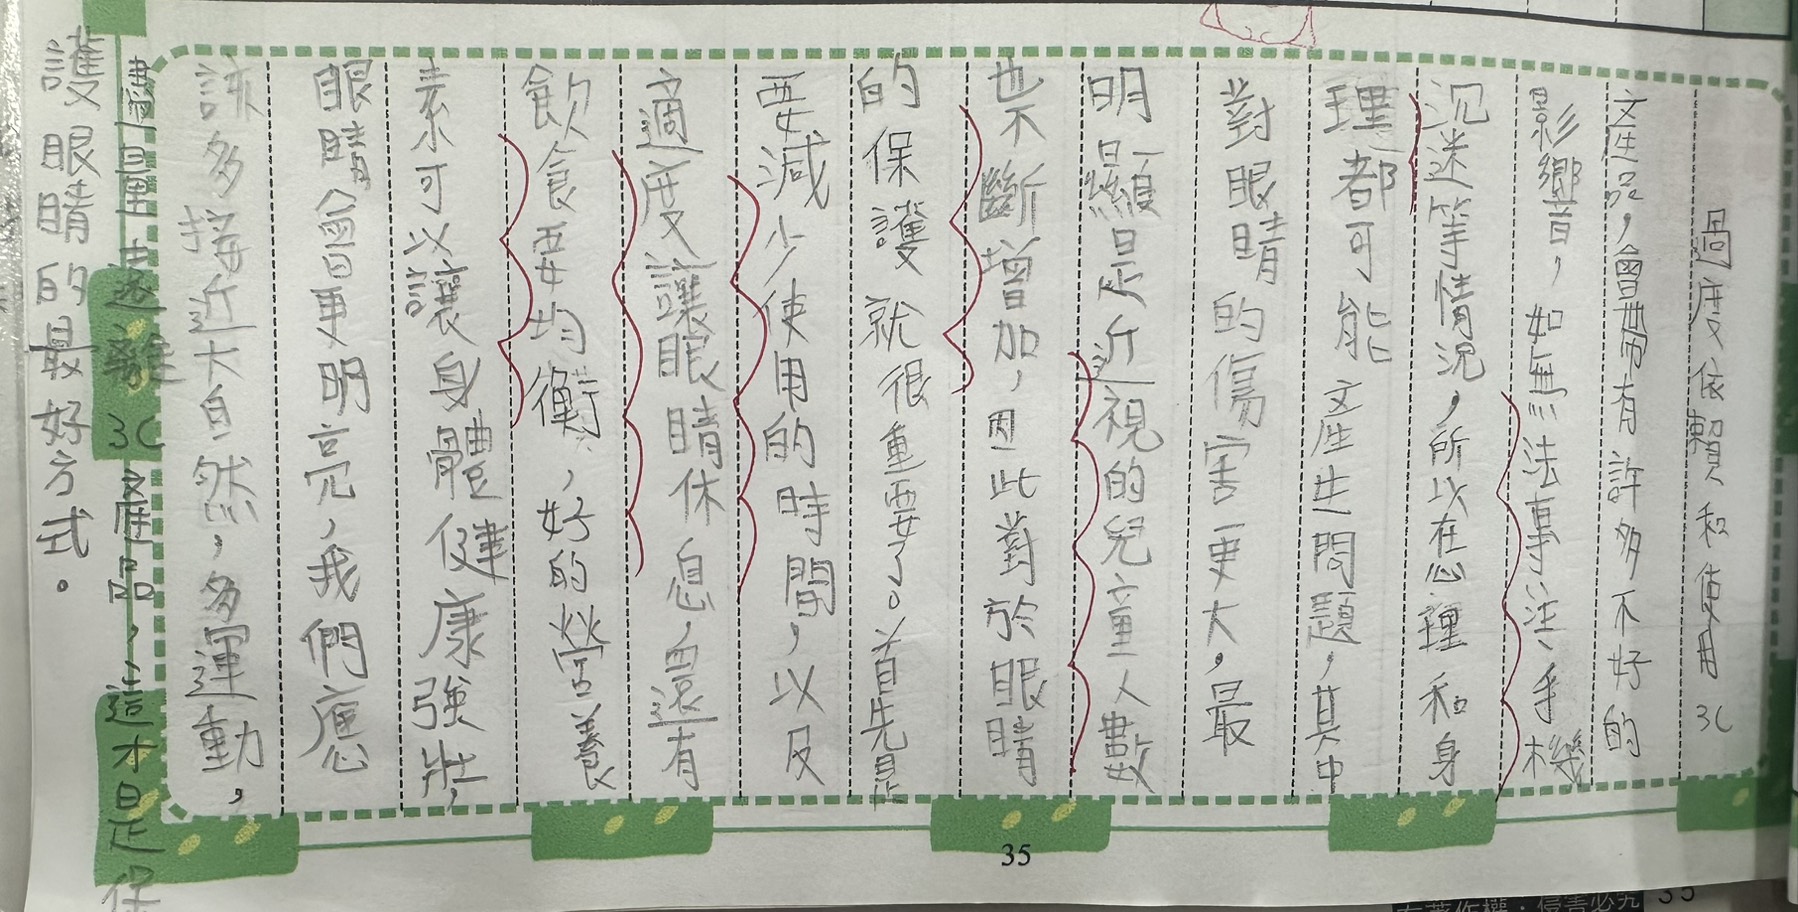 過度依賴和使用3C
產品，會帶有許多不好的
影響音，如無法專注、手機
沉迷等情況，所以在心理和身
理都可能產生問題，其中
對眼睛的傷害更大，最
明顯是近視的兒童人數
也不斷增加，因此對於眼睛
的保護就很重要了。首先是
要減少使用的時間，以及
適度讓眼睛休息，還有
飲食要均衡，好的營養
素可以讓身體健康強壯，
眼睛會更明亮，我們應
該多接近大自然，多運動，
盡量遠離3C產品，這才是保
護眼睛的最好方式。
35
有著作權・侵害必究
35